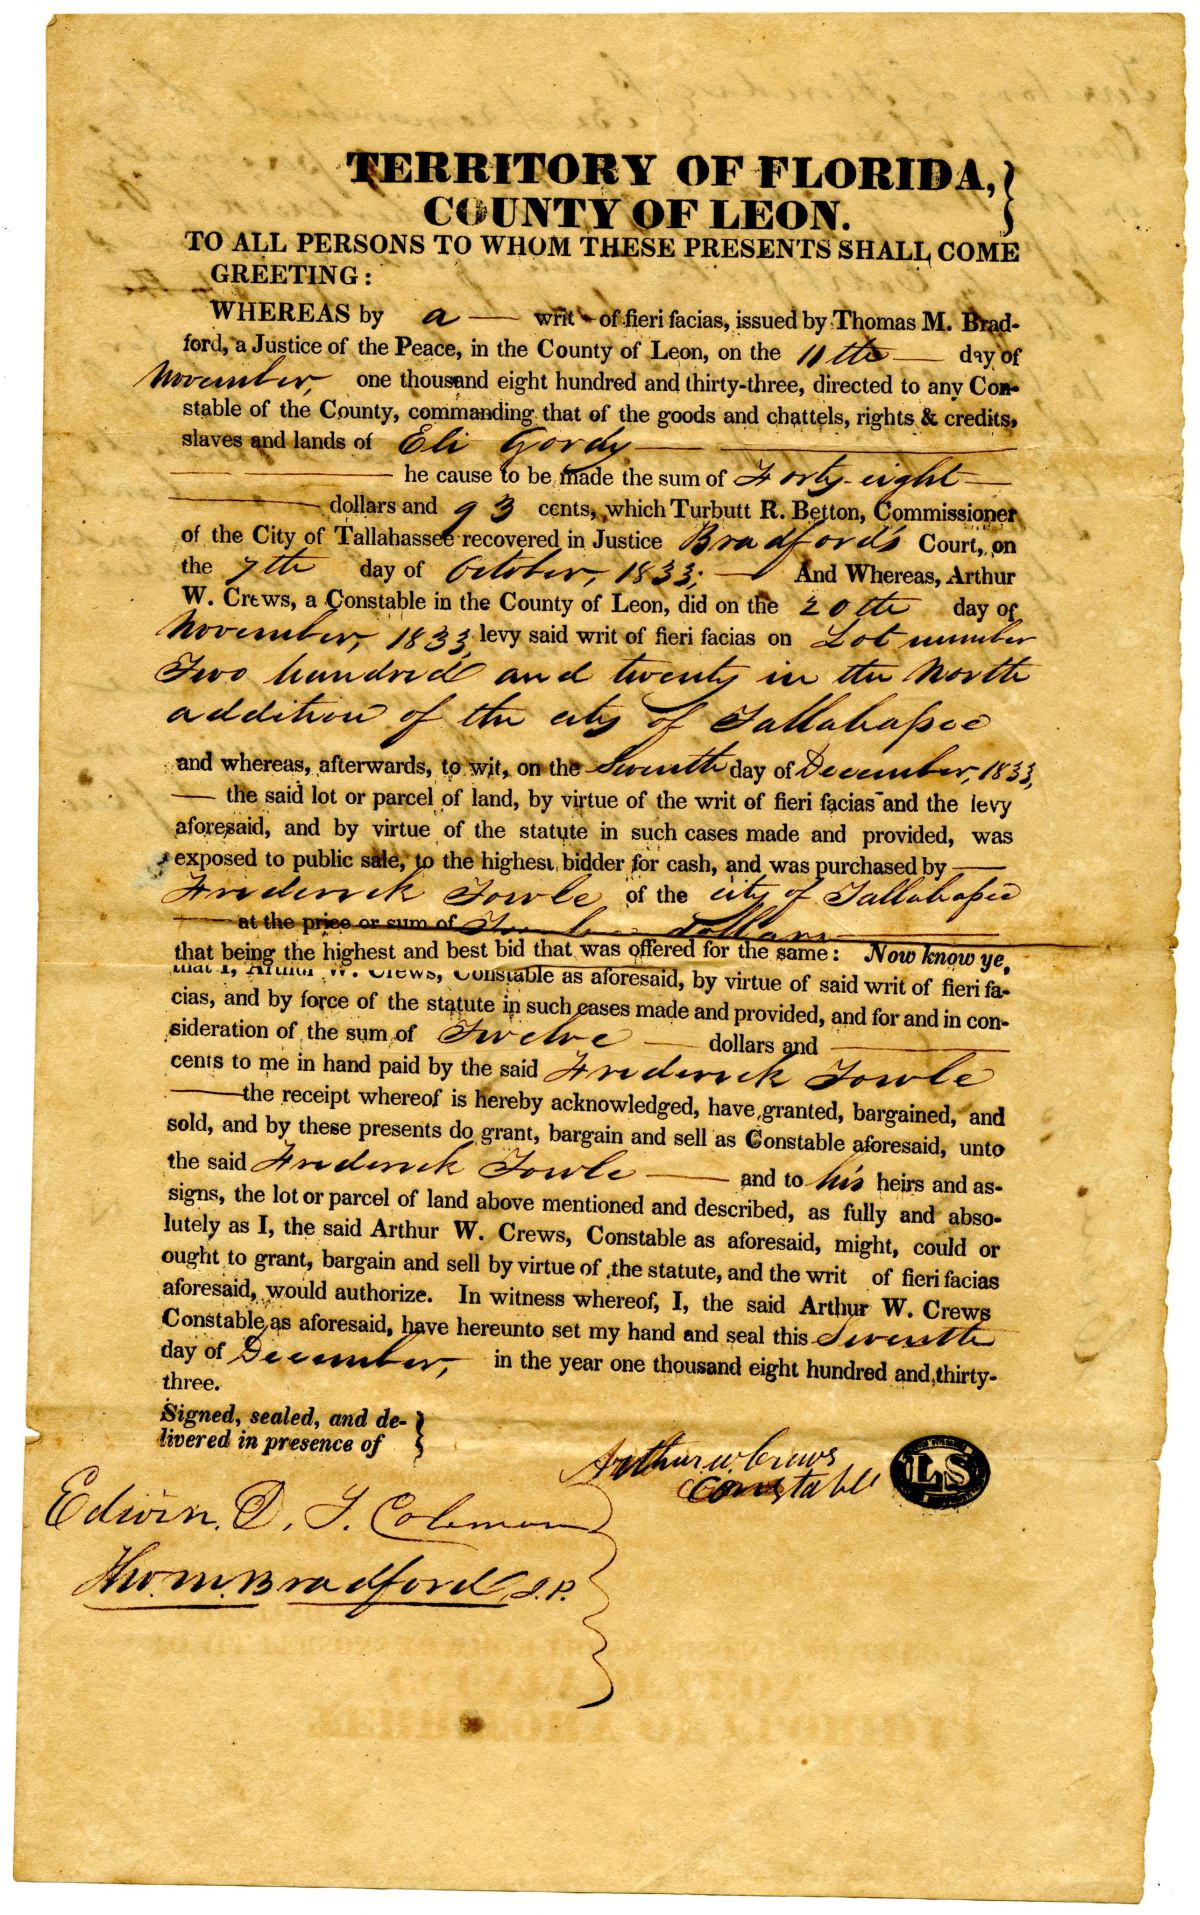 TERRITORY OF FLORIDA,
COUNTY OF LEON.
TO ALL PERSONS TO WHOM THESE PRESENTS SHALL COME
GREETING:
WHEREAS by a — writ - of fieri facias, issued by Thomas M. Brad-
ford, a Justice of the Peace, in the County of Leon, on the 11th — day of
November, one thousand eight hundred and thirty-three, directed to any Con-
stable of the County, commanding that of the goods and chattels, rights & credits,
slaves and lands of Eli Gordy —
— he cause to be made the sum of Forty-eight —
— dollars and 93 cents, which Turbutt R. Betton, Commissioner
of the City of Tallahassee recovered in Justice Bradford's Court, on
the 7th day of October, 1833; — And Whereas, Arthur
W. Crews, a Constable in the County of Leon, did on the 20th day of
November, 1833, levy said writ of fieri facias on Lot number
Two hundred and twenty in the North
addition of the city of Tallahassee
and whereas, afterwards, to wit, on the Seventh day of December, 1833,
— the said lot or parcel of land, by virtue of the writ of fieri facias and the levy
aforesaid, and by virtue of the statute in such cases made and provided, was
exposed to public sale, to the highest bidder for cash, and was purchased by —
Frederick Towle of the city of Tallahassee
— at the price or sum of Twelve dollars —
that being the highest and best bid that was offered for the same: Now know ye,
that I, Arthur W. Crews, Constable as aforesaid, by virtue of said writ of fieri fa-
cias, and by force of the statute in such cases made and provided, and for and in con-
sideration of the sum of Twelve — dollars and —
cents to me in hand paid by the said Frederick Towle
— the receipt whereof is hereby acknowledged, have granted, bargained, and
sold, and by these presents do grant, bargain and sell as Constable aforesaid, unto
the said Frederick Towle — and to his heirs and as-
signs, the lot or parcel of land above mentioned and described, as fully and abso-
lutely as I, the said Arthur W. Crews, Constable as aforesaid, might, could or
ought to grant, bargain and sell by virtue of the statute, and the writ of fieri facias
aforesaid, would authorize. In witness whereof, I, the said Arthur W. Crews
Constable as aforesaid, have hereunto set my hand and seal this Seventh
day of December, in the year one thousand eight hundred and thirty-
three.
Signed, sealed, and de-
livered in presence of
Arthur W Crews
Constable
LS
Edwin. D. T. Coleman
Tho. M. Bradford, J.P.